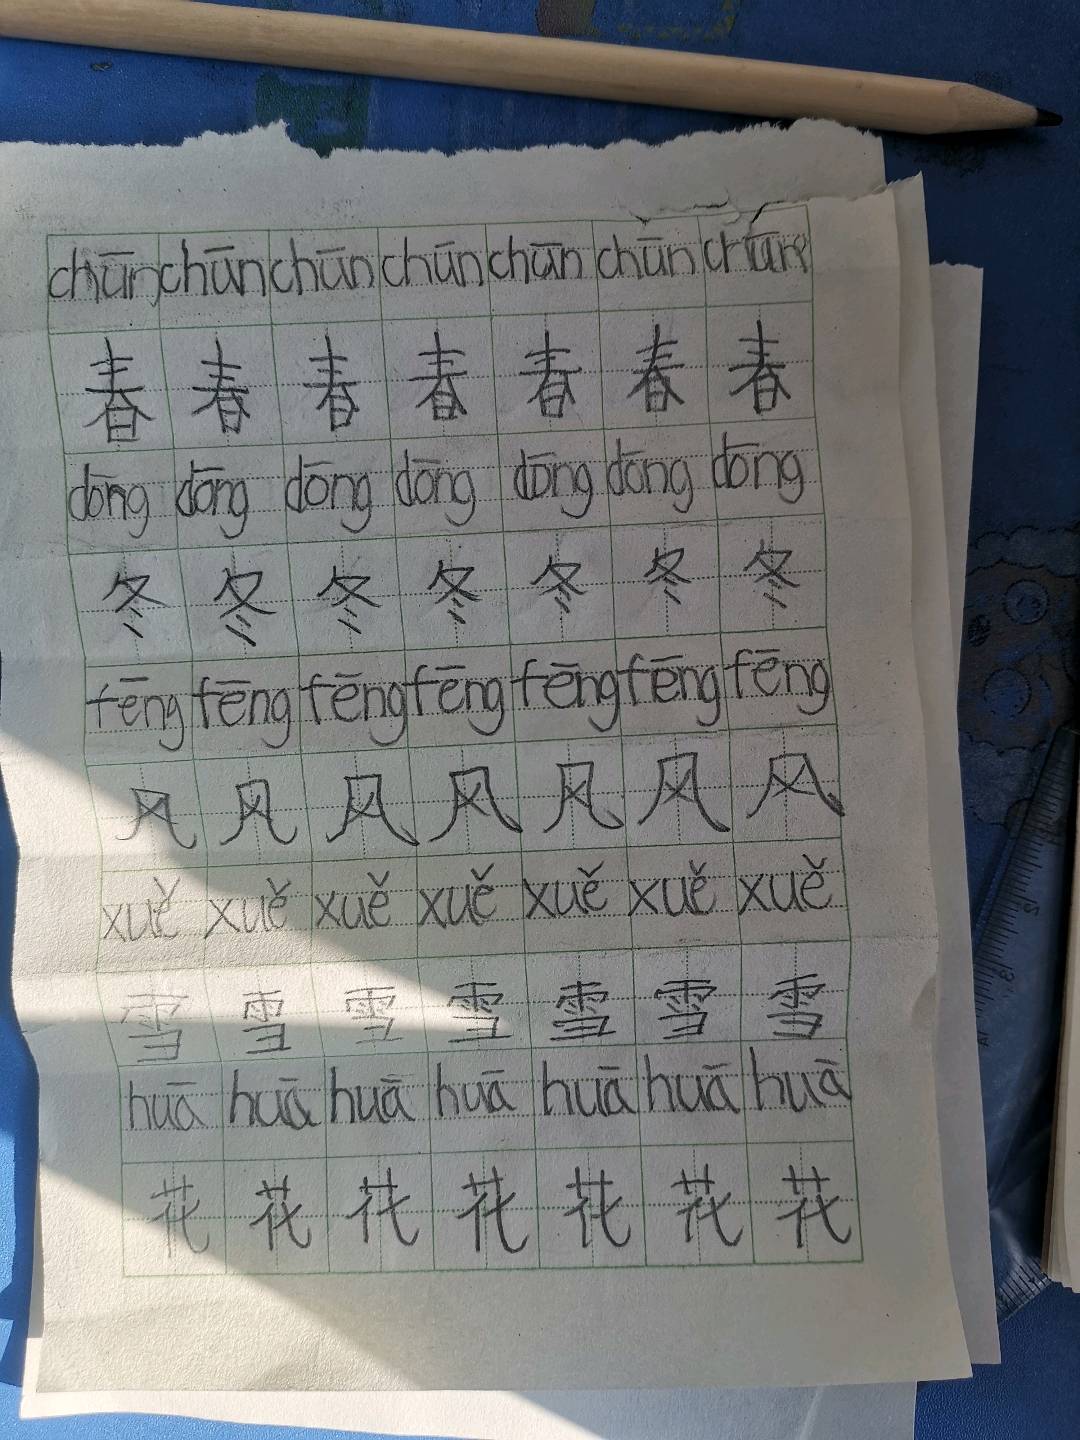 chūn chūn chūn chūn chūn chūn chūn
春 春 春 春 春 春 春
dōng dōng dōng dōng dōng dōng dōng
冬 冬 冬 冬 冬 冬 冬
fēng fēng fēng fēng fēng fēng fēng
风 风 风 风 风 风 风
xuě xuě xuě xuě xuě xuě xuě
雪 雪 雪 雪 雪 雪 雪
huā huā huā huā huā huā huā
花 花 花 花 花 花 花